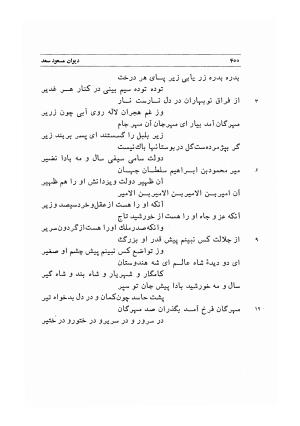 ۴۰۰ دیوان مسعود سعد
بدره بدره زر یابی زیر پای هر درخت
توده توده سیم بینی در کنار هر غدیر
۳ از فراق نوبهاران در دل نارست نار
وز غم هجران لاله روی آبی چون زریر
مهرگان آمد بیار ای مهرجان آن مهر جام
زیر بلبل را گسستند ای پسر بربند زیر
گر بپژمرده‌ست گل در بوستانها باک نیست
دولت سامی سیفی سال و مه بادا نضیر
۶ میر محمود بن ابراهیم سلطان جهان
آن ظهیر دولت و یزدانش او را هم ظهیر
آن امیر بن الامیر بن الامیر بن الامیر
آنکه او را هست از عقل و خرد سیصد وزیر
آنکه عز و جاه او را هست از خورشید تاج
و آنکه صدر ملک او را هست از گردون سریر
۹ از جلالت کس نبینم پیش قدر او بزرگ
وز تواضع کس نبینم پیش چشم او صغیر
ای دو دیدهٔ شاه عالم ای شه هندوستان
کامگار و شهریار و شاه بند و شاه گیر
سال و مه خورشید بادا پیش جان تو سپر
پشت حاسد چون کمان و در دل بدخواه تیر
۱۲ مهرگان فرخ آمد بگذران صد مهرگان
در سرور و در سریر و در حبور و در